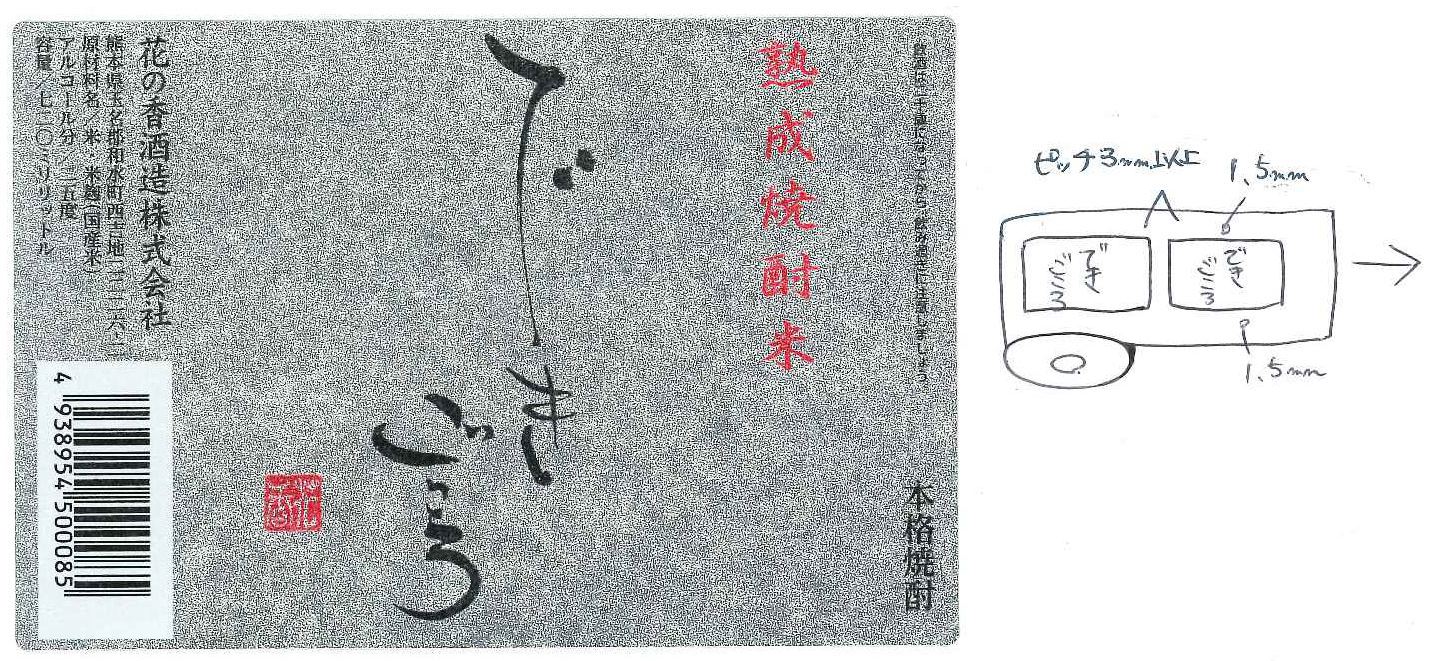 飲酒は二十歳になってから 飲み過ぎに注意しましょう
本格焼酎
熟成焼酎米
でき
ごころ
花の香酒造株式会社
熊本県玉名郡和水町西吉地二二二六・二
原材料名／米・米麹(国産米)
アルコール分／二五度
容量／七二〇ミリリットル
4 938954 500085
ピッチ3mm以上
1.5mm
でき
ごころ
でき
ごころ
1.5mm